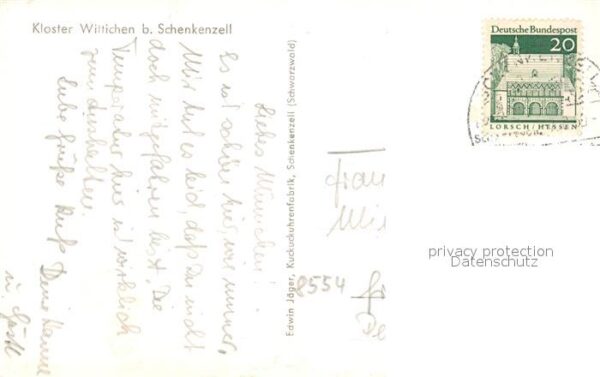 Kloster Wittichen b. Schenkenzell
Liebes München!
Es ist schön hier, wie immer,
Mir tut es leid, daß Du nicht
doch mitgefahren bist. Die
Temperatur hier ist wirklich
zum Aushalten.
Liebe Grüße Kuß Deine
u.
Edwin Jäger, Kuckuckuhrenfabrik, Schenkenzell (Schwarzwald)
Frau
8554
DEUTSCHE BUNDESPOST
20
LORSCH/HESSEN
privacy protection
Datenschutz